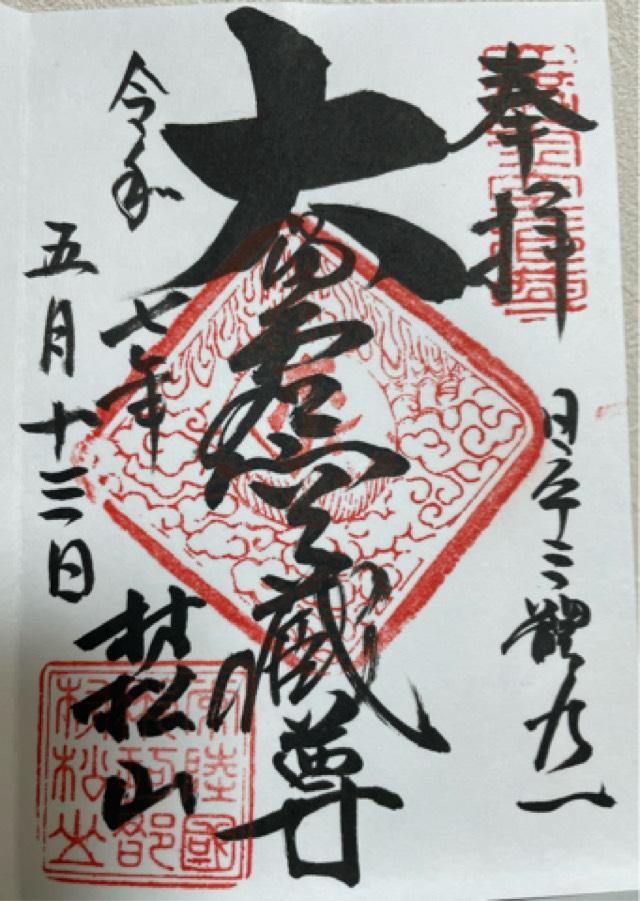 奉拝
日本三體乃一
大満虚空蔵尊
令和七年
五月十三日
村松山
常陸國
那珂郡
村松山